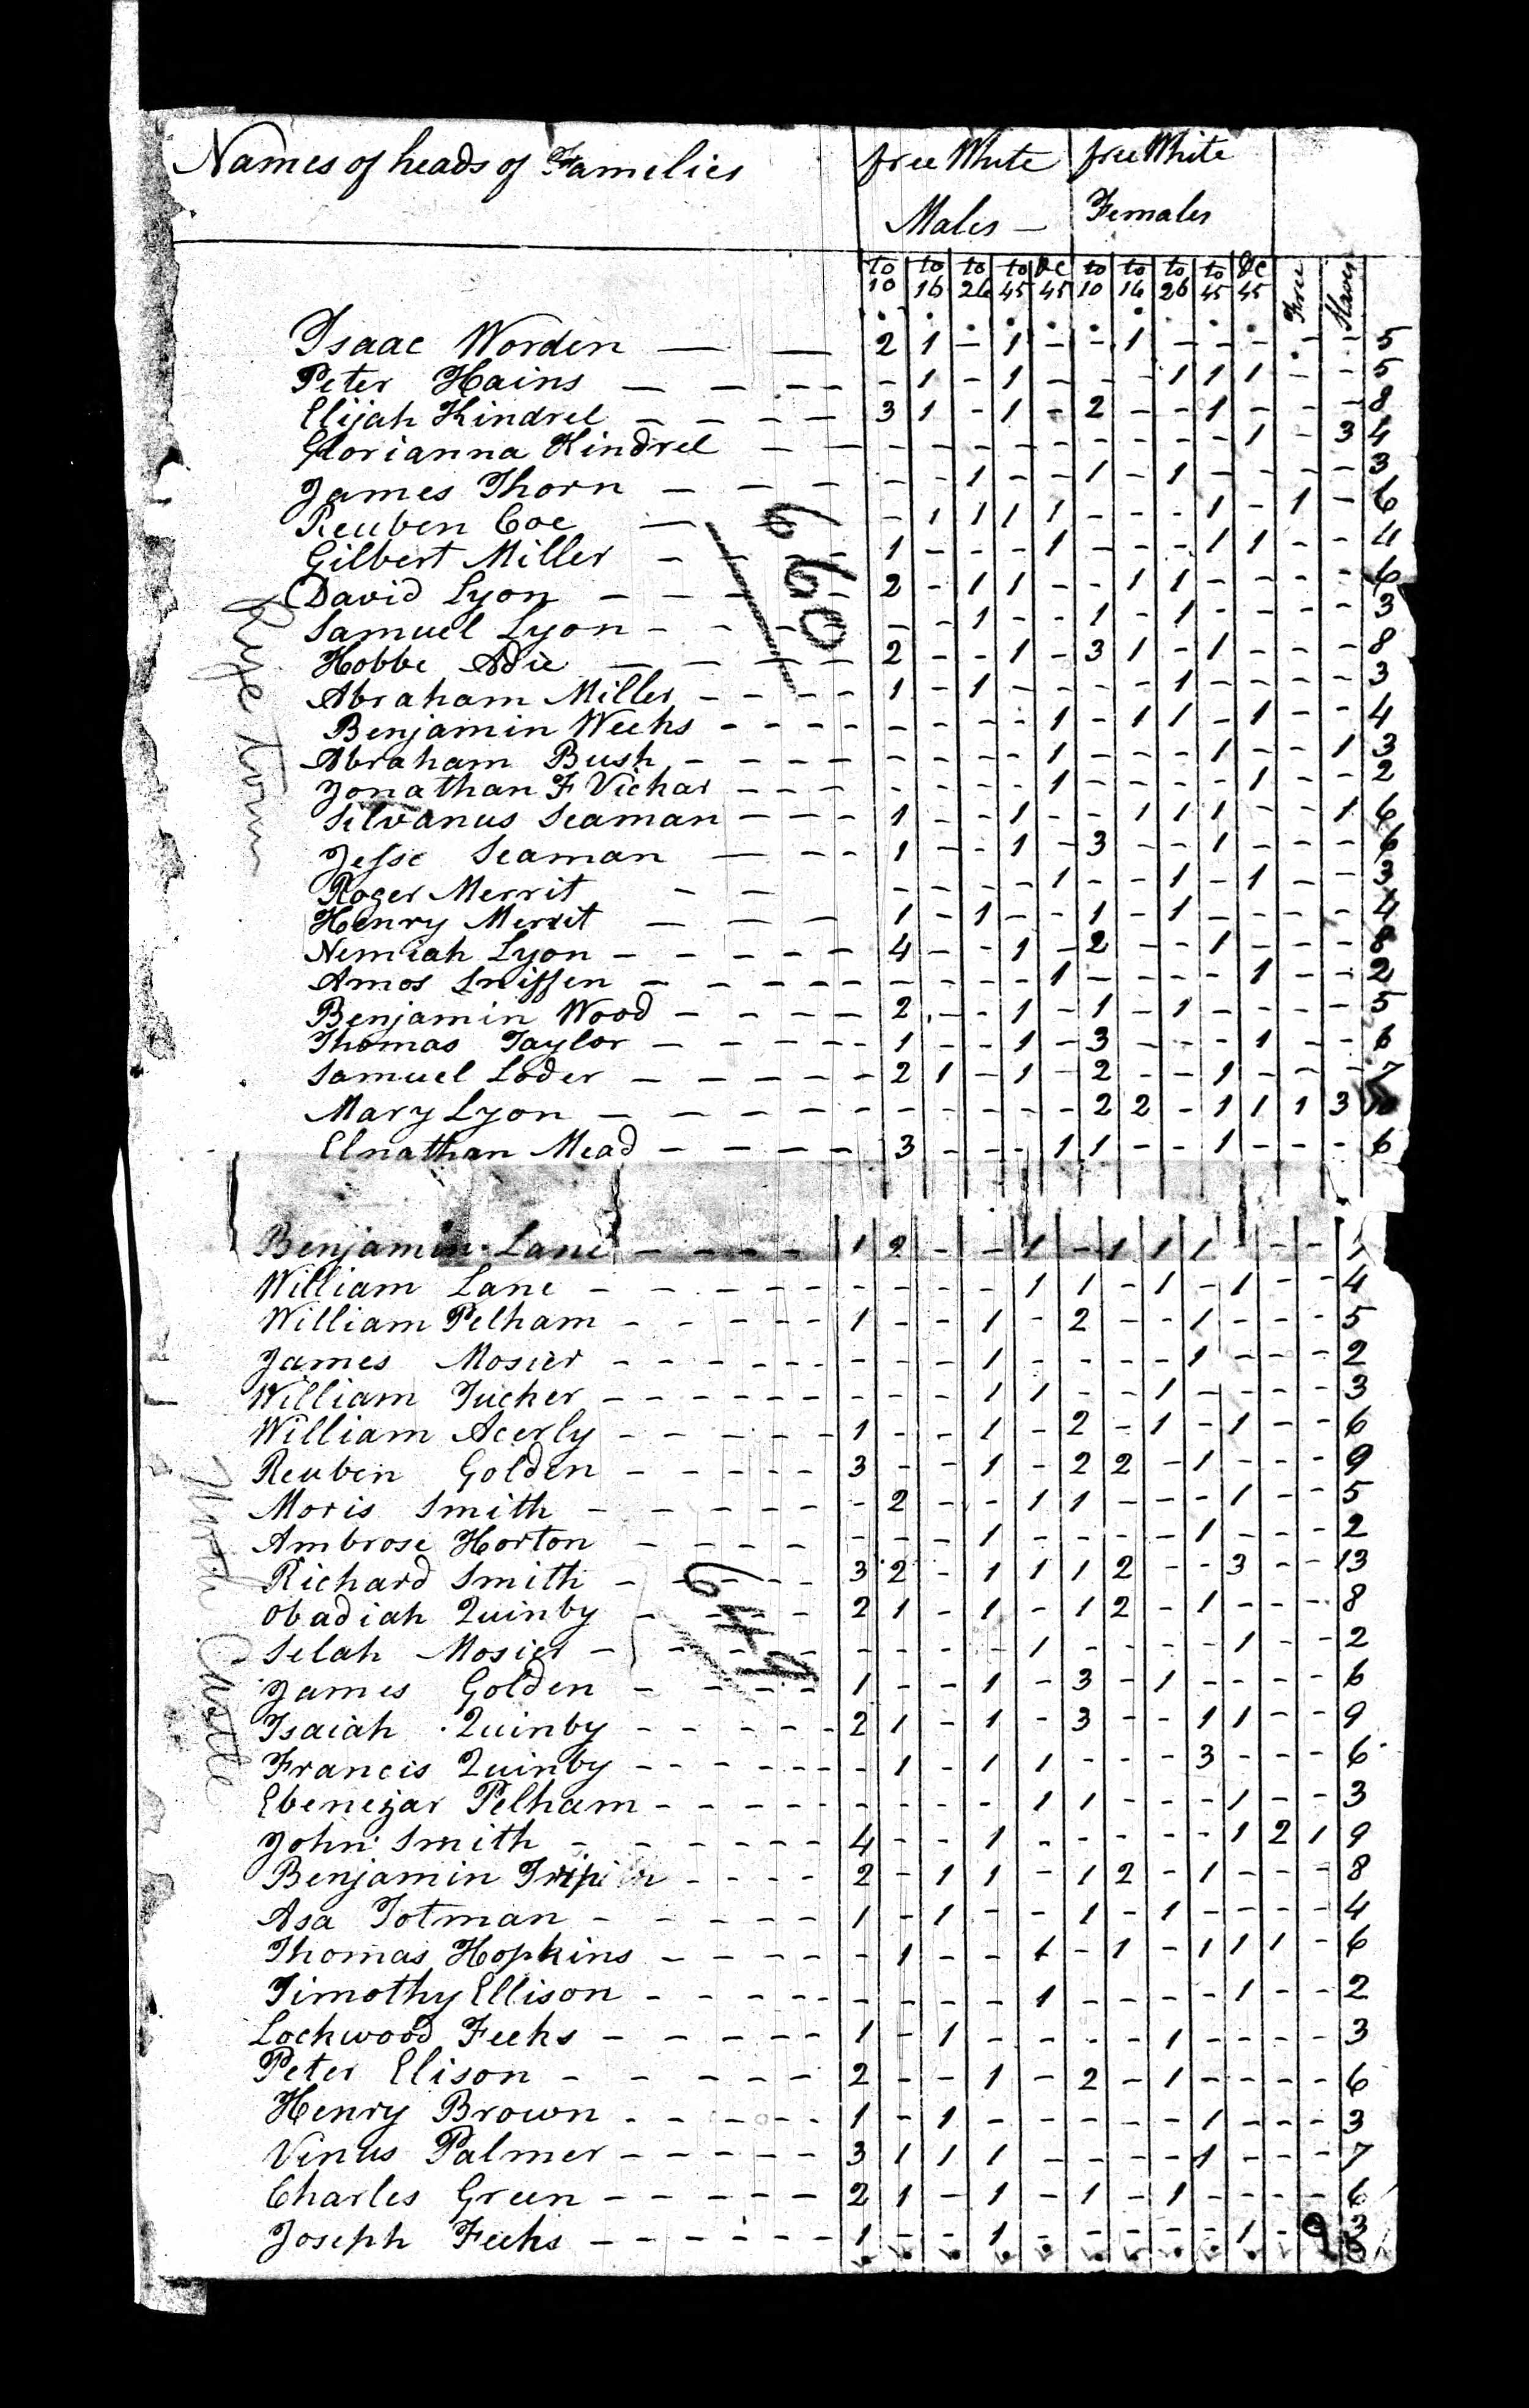 Names of heads of Famelies free White Males — free White Females
to 10 to 16 to 26 to 45 &c 45 to 10 to 16 to 26 to 45 &c 45 Free Slaves
Isaac Worden — — 2 1 - 1 - - 1 - - - - - 5
Peter Hains — — - - - 1 - 1 - - - 1 1 1 - - 5
Elijah Kindrel - - - - 3 1 - 1 - 2 - - 1 - - - 8
Glorianna Kindrel — - - - - - - - - - - 1 - 3 4
James Thorn — — - - - 1 - - 1 - 1 - - - - 3
Reuben Coe — - 1 1 1 1 - - - 1 - 1 - 6
Gilbert Miller - - 1 - - - 1 - - - 1 1 - - 4
David Lyon - - - 2 - 1 1 - - 1 1 - - - - 6
Samuel Lyon - - - - - 1 - - 1 - 1 - - - - 3
Hobbe Adie — — — 2 - - 1 - 3 1 - 1 - - - 8
Abraham Miller - - - - 1 - 1 - - - - 1 - - - - 3
Benjamin Weeks - - - - - - - - 1 - 1 1 - 1 - - 4
Abraham Bush - - - - - - - - 1 - - - 1 - - 1 3
Jonathan F Vickar - - - - - - - 1 - - - - 1 - - 2
Silvanus Seaman - - - 1 - - 1 - - 1 1 1 - - 1 6
Jesse Seaman — - - 1 - - 1 - 3 - - 1 - - - 6
Roger Merrit - - - - - - 1 - - 1 - 1 - - 3
Henry Merrit — — - 1 - 1 - - 1 - 1 - - - - 4
Nemiah Lyon - - - - - 4 - - 1 - 2 - - 1 - - - 8
Amos Sniffen - - - - - - - - - 1 - - - - 1 - - 2
Benjamin Wood - - - - 2 - - 1 - 1 - 1 - - - - 5
Thomas Taylor - - - - - 1 - - 1 - 3 - - - 1 - - 6
Samuel Loder - - - - - 2 1 - 1 - 2 - - 1 - - - 7
Mary Lyon - - - - - - - - - - 2 2 - 1 1 1 3 10
Elnathan Mead - - - - 3 - - - 1 1 - - 1 - - - 6
Rye town
660
Benjamin Lane - - - - 1 2 - - 1 - 1 1 1 - - - 7
William Lane - - - - - - - - - 1 1 - 1 - 1 - - 4
William Pelham - - - - - 1 - - 1 - 2 - - 1 - - - 5
James Mosier - - - - - - - - 1 - - - - 1 - - - 2
William Tucker - - - - - - - - 1 1 - - 1 - - - - 3
William Acerly - - - - - 1 - - 1 - 2 - 1 - 1 - - 6
Reuben Golden - - - - - 3 - - 1 - 2 2 - 1 - - - 9
Moris Smith - - - - - - 2 - - 1 1 - - - 1 - - 5
Ambrose Horton - - - - - - - 1 - - - - 1 - - - 2
Richard Smith - - - - 3 2 - 1 1 1 2 - - 3 - - 13
Obadiah Quinby - - - - 2 1 - 1 - 1 2 - 1 - - - 8
Selah Mosier - - - - - - - - 1 - - - - 1 - - 2
James Golden - - - - 1 - - 1 - 3 - 1 - - - - 6
Isaiah Quinby - - - - - 2 1 - 1 - 3 - - 1 1 - - 9
Francis Quinby - - - - - - 1 - 1 1 - - - 3 - - - 6
Ebenezar Pelham - - - - - - - - - 1 1 - - - 1 - - 3
John Smith - - - - - - 4 - - 1 - - - - - 1 2 1 9
Benjamin - - - - 2 - 1 1 - 1 2 - 1 - - - 8
Asa Totman - - - - - 1 - 1 - - 1 - 1 - - - - 4
Thomas Hopkins - - - - - 1 - - 1 - 1 - 1 1 1 - 6
Timothy Ellison - - - - - - - - - 1 - - - - 1 - - 2
Lockwood Feeks - - - - - 1 - 1 - - - - 1 - - - - 3
Peter Elison - - - - - 2 - - 1 - 2 - 1 - - - - 6
Henry Brown - - - - - 1 - 1 - - - - - 1 - - - 3
Vinus Palmer - - - - - 3 1 1 1 - - - - 1 - - - 7
Charles Green - - - - - 2 1 - 1 - 1 - 1 - - - - 6
Joseph Feeks - - - - - - 1 - - 1 - - - - - 1 - 3
North Castle
649